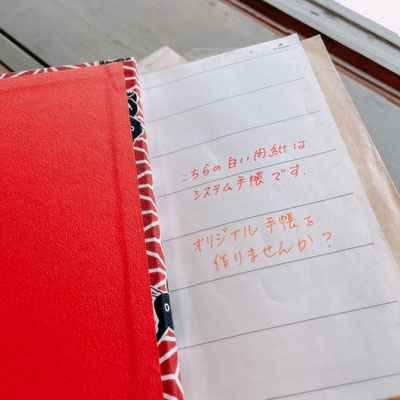 こちらの白い用紙は
システム手帳です.
オリジナル手帳を
作りませんか？